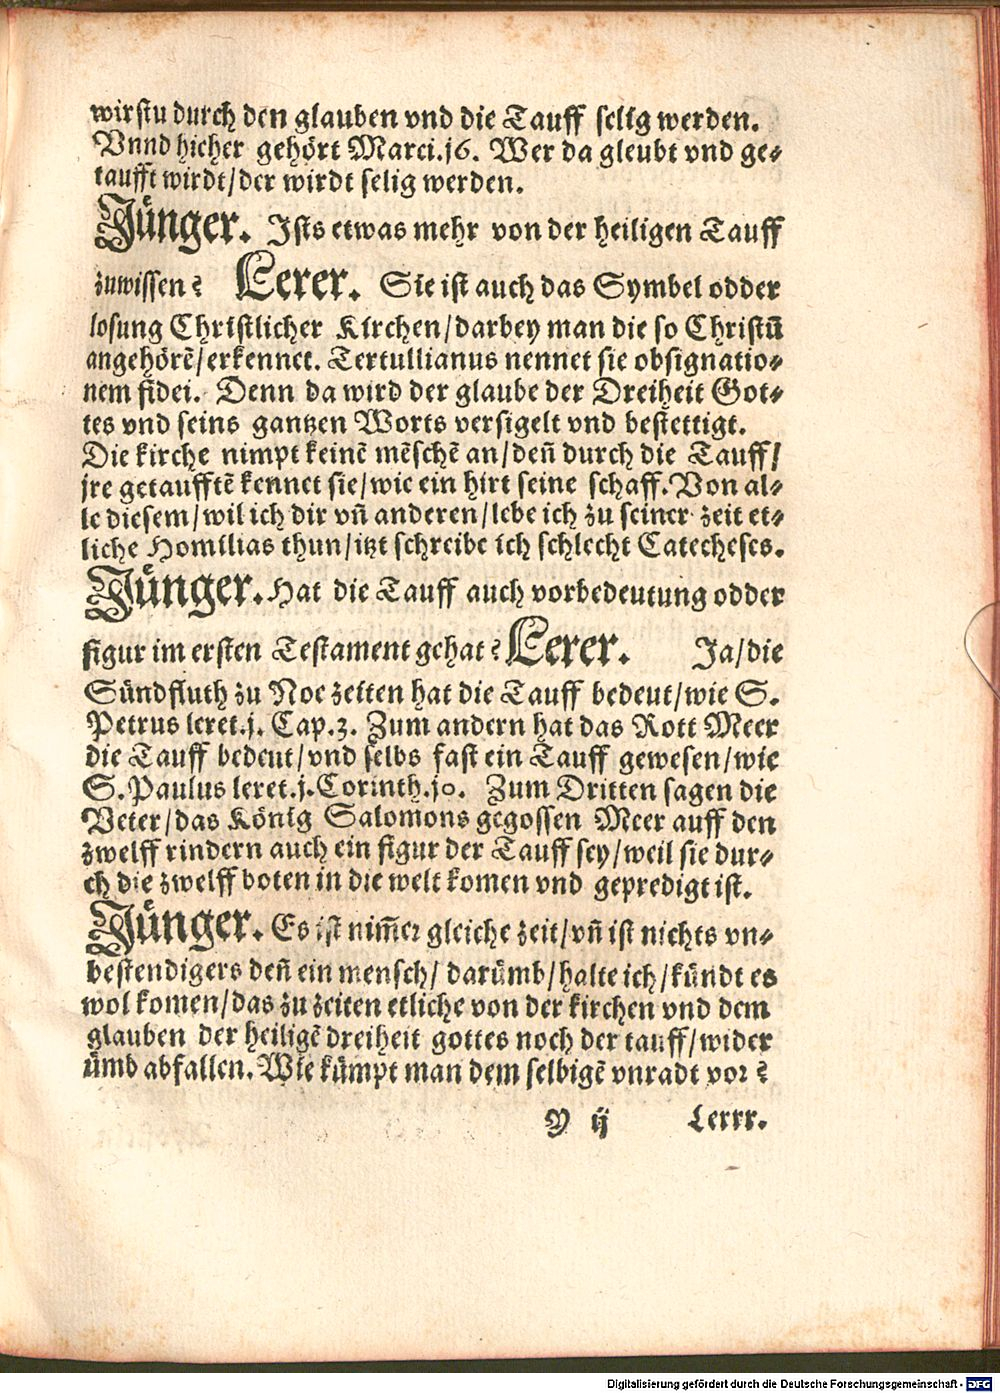 wirstu durch den glauben vnd die Tauff selig werden.
Vnnd hieher gehört Marci.j6. Wer da gleubt vnd ge⸗
taufft wirdt/der wirdt selig werden.
Jünger. Ists etwas mehr von der heiligen Tauff
zuwissen? Lerer. Sie ist auch das Symbel odder
losung Christlicher Kirchen/darbey man die so Christū
angehörē/erkennet. Tertullianus nennet sie obsignatio⸗
nem fidei. Denn da wird der glaube der Dreiheit Got⸗
tes vnd seins gantzen Worts versigelt vnd bestettigt.
Die kirche nimpt keinē mēschē an/deñ durch die Tauff/
jre getaufftē kennet sie/wie ein hirt seine schaff. Von al⸗
le diesem/wil ich dir vñ anderen/lebe ich zu seiner zeit et⸗
liche Homilias thun/itzt schreibe ich schlecht Catecheses.
Jünger. Hat die Tauff auch vorbedeutung odder
figur im ersten Testament gehat? Lerer. Ja/die
Sündfluth zu Noe zeiten hat die Tauff bedeut/wie S.
Petrus leret.j. Cap.3. Zum andern hat das Rott Meer
die Tauff bedeut/vnd selbs fast ein Tauff gewesen/wie
S. Paulus leret.j.Corinth.jo. Zum Dritten sagen die
Veter/das König Salomons gegossen Meer auff den
zwelff rindern auch ein figur der Tauff sey/weil sie dur⸗
ch die zwelff boten in die welt komen vnd gepredigt ist.
Jünger. Es ist nim̄er gleiche zeit/vñ ist nichts vn⸗
bestendigers deñ ein mensch/ darümb/halte ich/kündt es
wol komen/das zu zeiten etliche von der kirchen vnd dem
glauben der heiligē dreiheit gottes noch der tauff/wider
ümb abfallen. Wie kümpt man dem selbigē vnradt vor?
Y ij Lerrr.
Digitalisierung gefördert durch die Deutsche Forschungsgemeinschaft - DFG